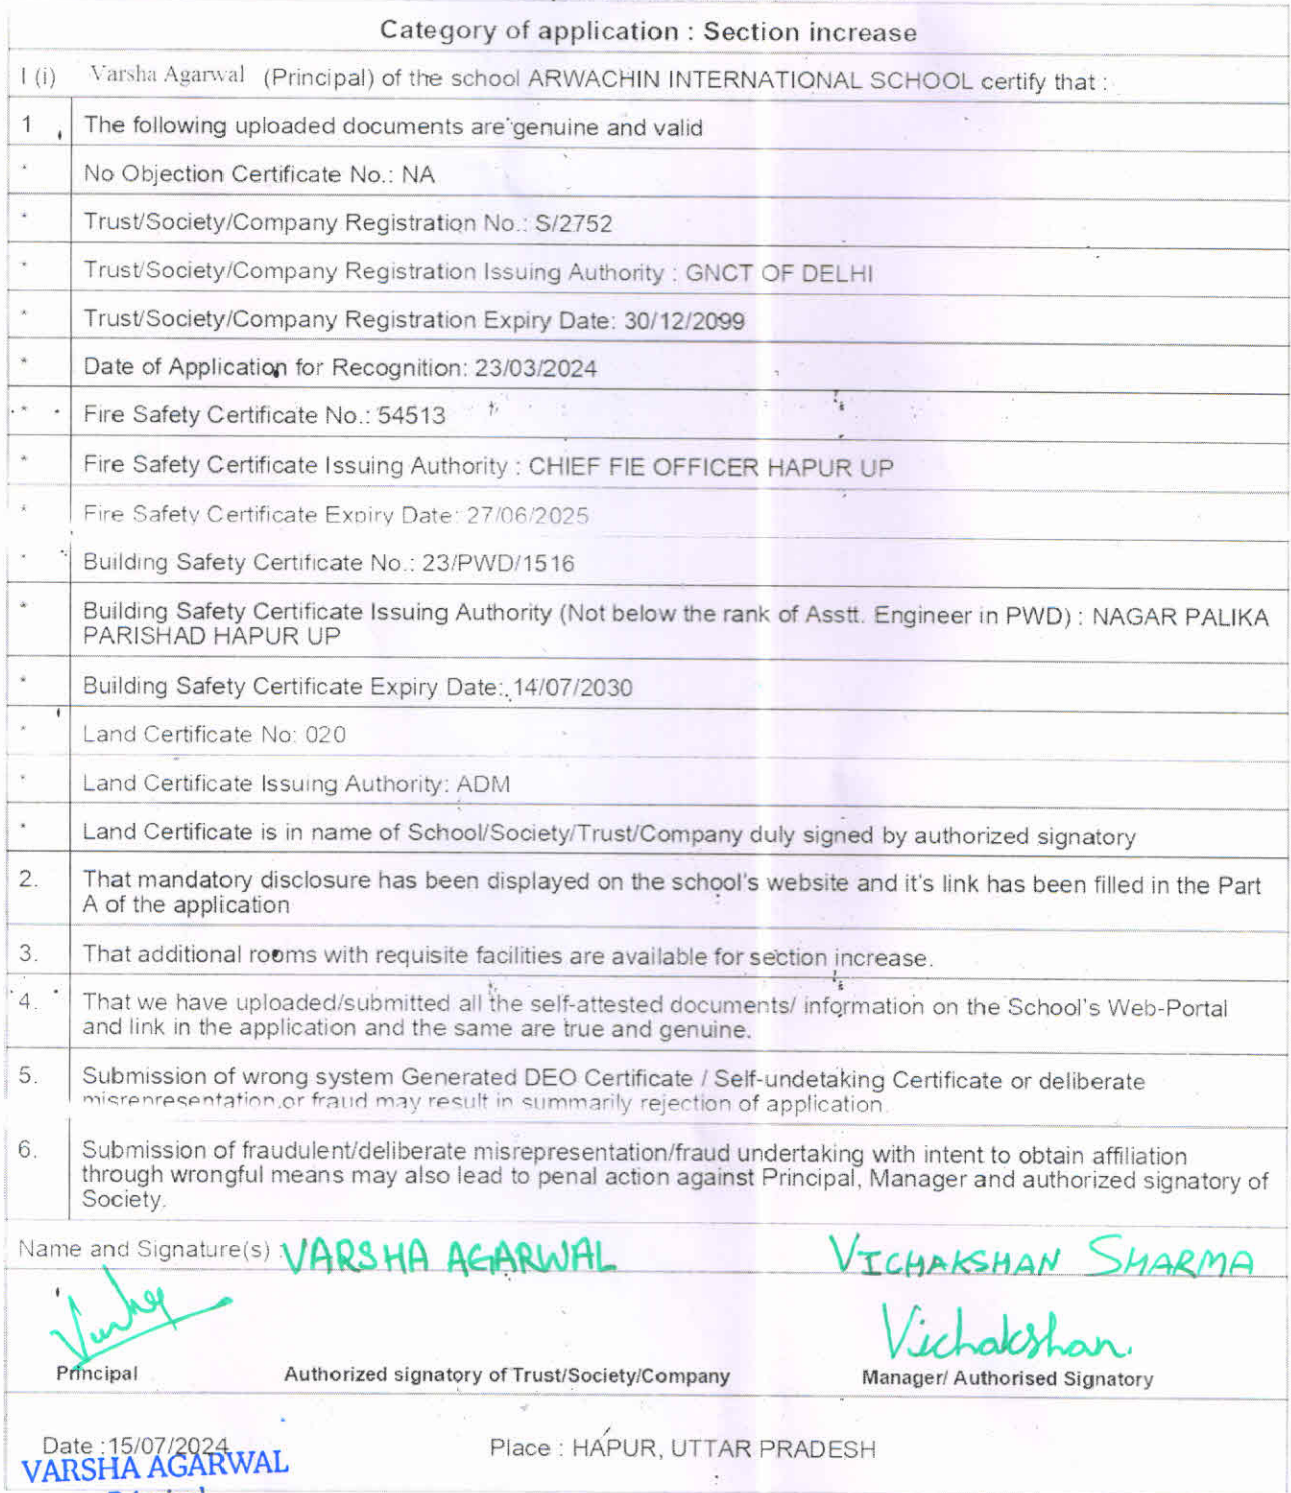 Category of application : Section increase
I (i) Varsha Agarwal (Principal) of the school ARWACHIN INTERNATIONAL SCHOOL certify that :
1 The following uploaded documents are genuine and valid
* No Objection Certificate No.: NA
* Trust/Society/Company Registration No.: S/2752
* Trust/Society/Company Registration Issuing Authority : GNCT OF DELHI
* Trust/Society/Company Registration Expiry Date: 30/12/2099
* Date of Application for Recognition: 23/03/2024
* Fire Safety Certificate No.: 54513
* Fire Safety Certificate Issuing Authority : CHIEF FIE OFFICER HAPUR UP
* Fire Safety Certificate Expiry Date: 27/06/2025
* Building Safety Certificate No.: 23/PWD/1516
* Building Safety Certificate Issuing Authority (Not below the rank of Asstt. Engineer in PWD) : NAGAR PALIKA
PARISHAD HAPUR UP
* Building Safety Certificate Expiry Date: 14/07/2030
* Land Certificate No: 020
* Land Certificate Issuing Authority: ADM
* Land Certificate is in name of School/Society/Trust/Company duly signed by authorized signatory
2. That mandatory disclosure has been displayed on the school's website and it's link has been filled in the Part
A of the application
3. That additional rooms with requisite facilities are available for section increase.
4. That we have uploaded/submitted all the self-attested documents/ information on the School's Web-Portal
and link in the application and the same are true and genuine.
5. Submission of wrong system Generated DEO Certificate / Self-undetaking Certificate or deliberate
misrepresentation or fraud may result in summarily rejection of application.
6. Submission of fraudulent/deliberate misrepresentation/fraud undertaking with intent to obtain affiliation
through wrongful means may also lead to penal action against Principal, Manager and authorized signatory of
Society.
Name and Signature(s) : VARSHA AGARWAL VICHAKSHAN SHARMA
Varsha Vichakshan.
Principal Authorized signatory of Trust/Society/Company Manager/ Authorised Signatory
Date : 15/07/2024 Place : HAPUR, UTTAR PRADESH
VARSHA AGARWAL